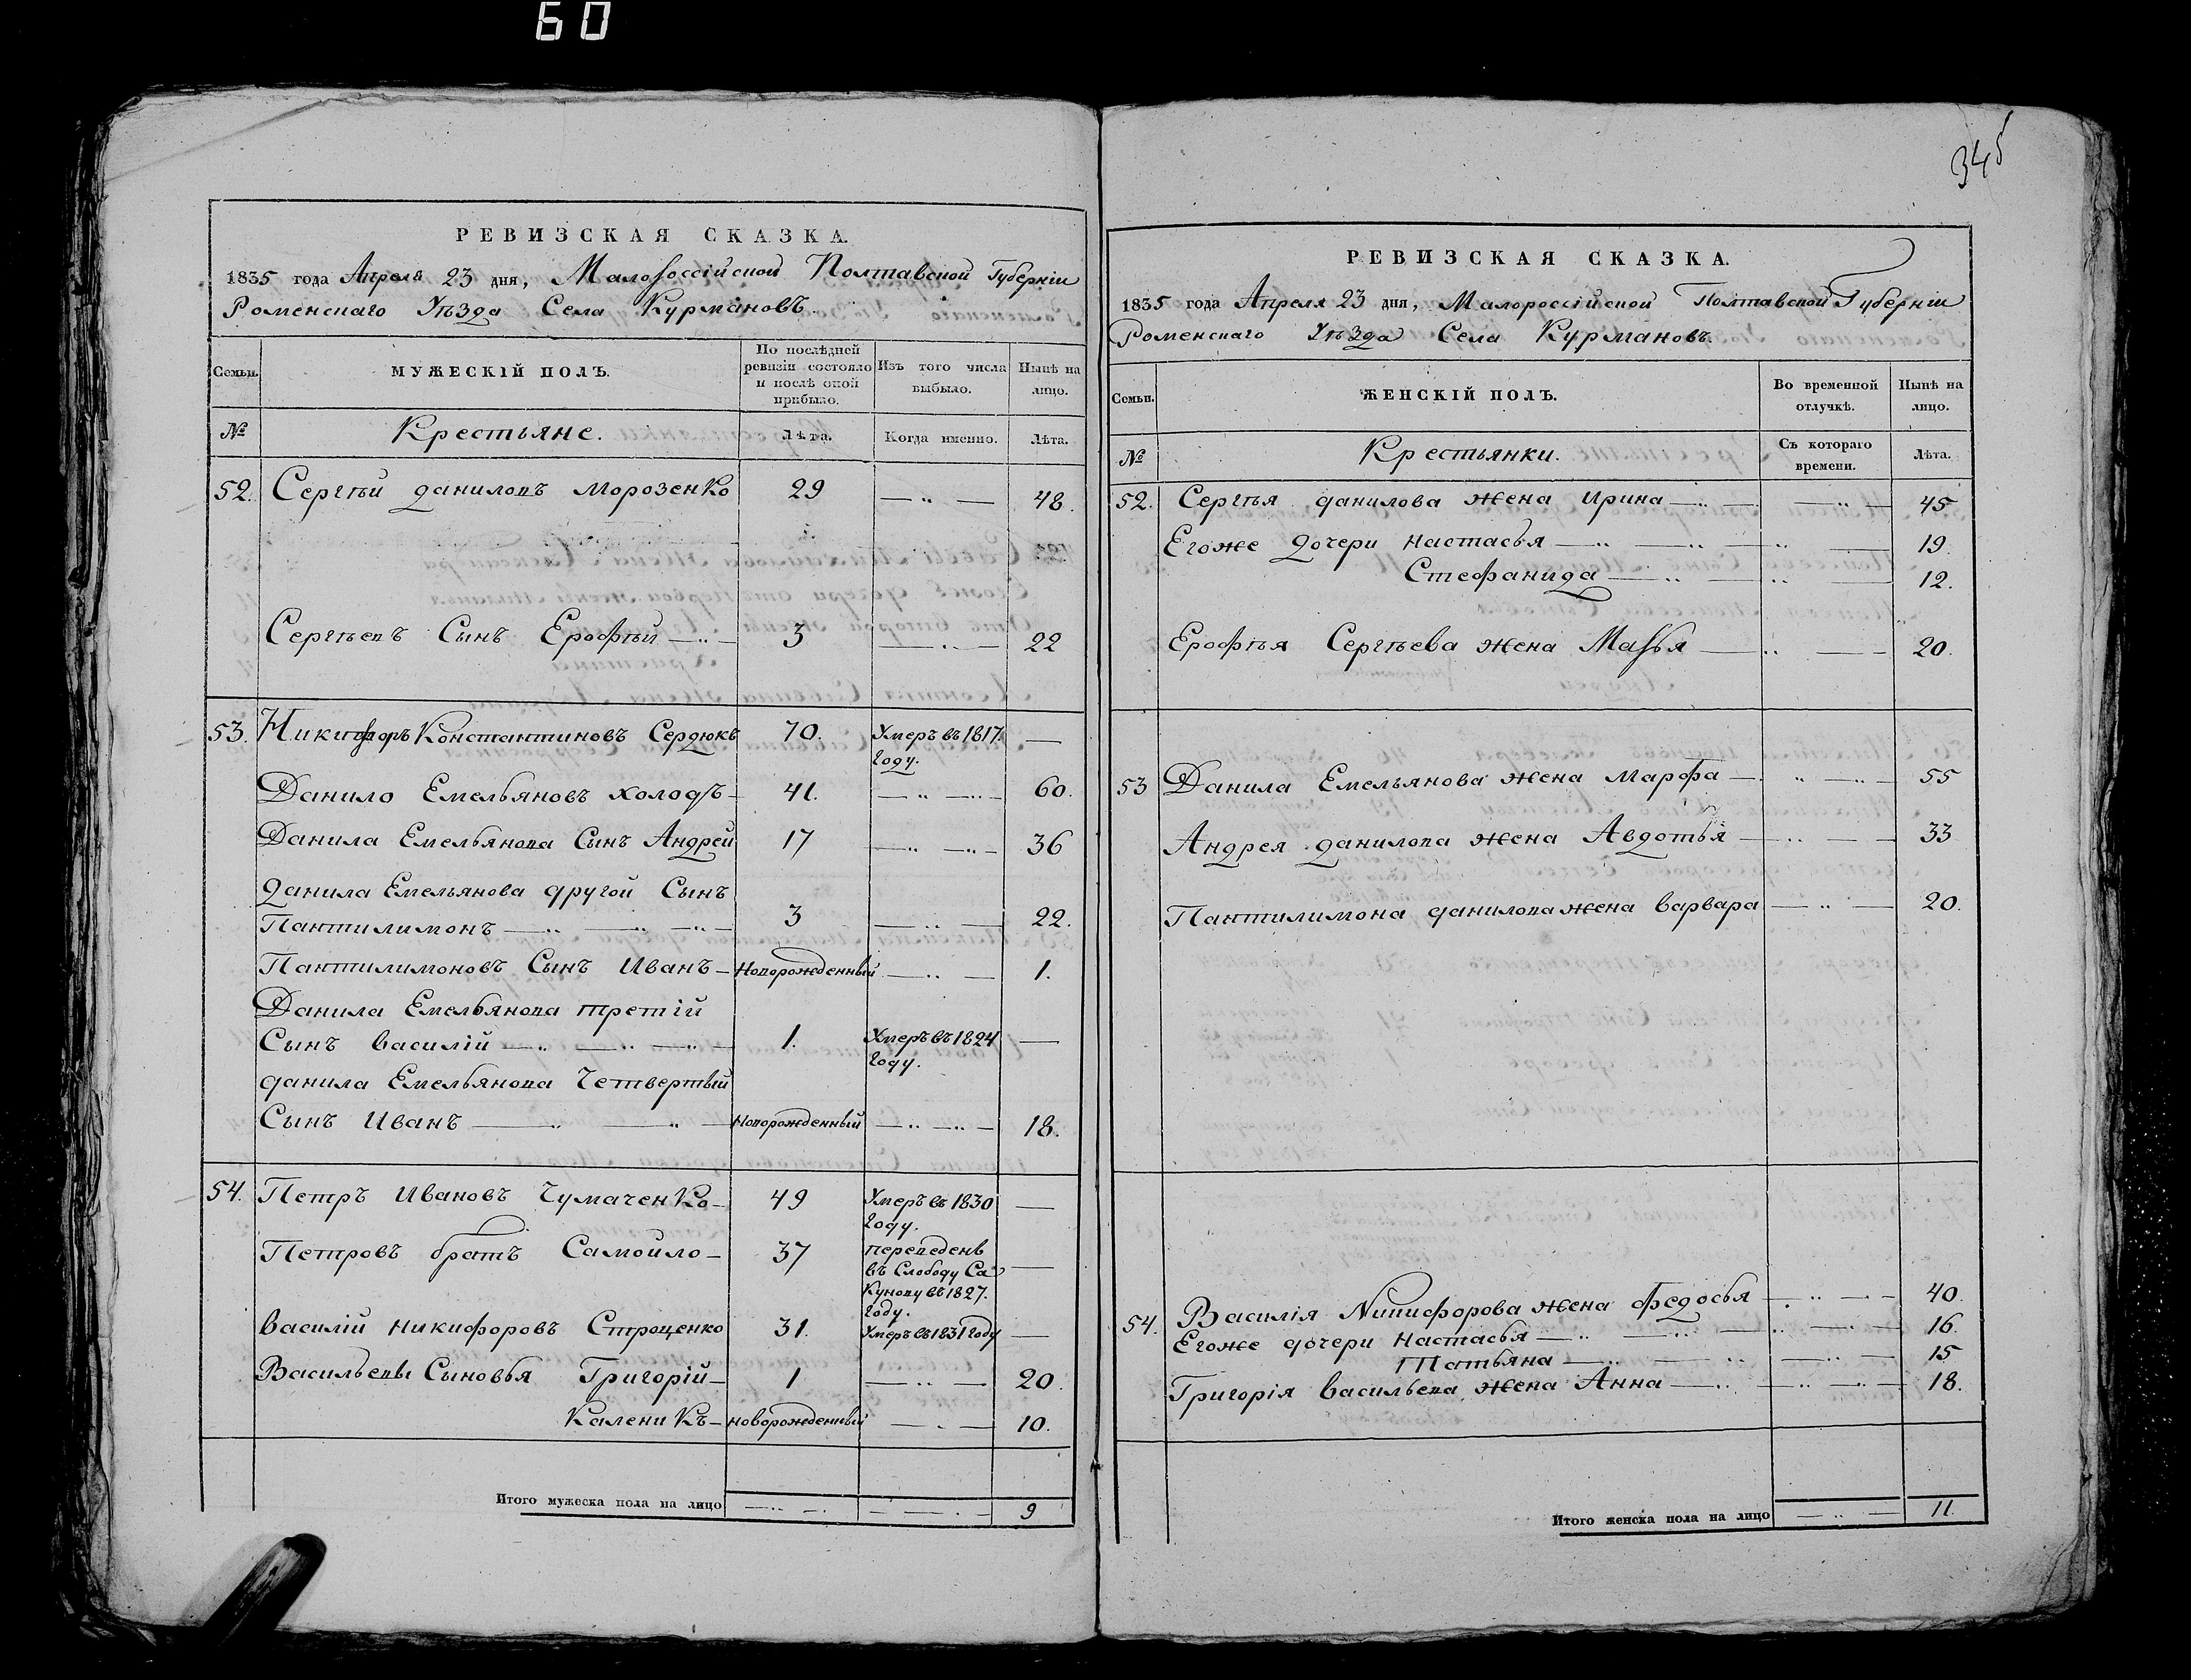 60
РЕВИЗСКАЯ СКАЗКА.
1835 года Апреля 23 дня, Малороссійской Полтавской Губерніи
Роменскаго Уѣзда Села Курмановъ.
Семьи.
МУЖЕСКІЙ ПОЛЪ.
По послѣдней ревизіи состояло и послѣ оной прибыло.
Изъ того числа выбыло.
Нынѣ на лицо.
№ Крестьяне. Лѣта. Когда именно. Лѣта.
52. Сергѣй Даниловъ Морозенко 29 — " — 48.
Сергѣевъ Сынъ Ерофѣй — " — 3 — " — 22
53. Никифоръ Константиновъ Сердюкъ 70. Умеръ въ 1817. —
году.
Данило Емельяновъ Холодъ — 41. — " — " — 60.
Данила Емельянова Сынъ Андрей 17 — " — " — 36
Данила Емельянова другой Сынъ
Пантилимонъ — " — " — " — 3 — " — 22.
Пантилимоновъ Сынъ Иванъ — Новорожденный — " — 1.
Данила Емельянова третій
Сынъ Василій — " — " — " — 1. Умеръ въ 1824 —
году.
Данила Емельянова Четвертый
Сынъ Иванъ — " — " — Новорожденный — " — " — 18.
54. Петръ Ивановъ Чумаченко — 49 Умеръ въ 1830 —
году.
Петровъ братъ Самойло — 37 переведенъ —
въ Слободу Са
Кунову въ 1827.
году.
Василій Никифоровъ Строценко 31. Умеръ въ 1831 году —
Васильевы Сыновья Григорій — 1 — " — 20.
Каленикъ — новорожденный — " — 10.
Итого мужеска пола на лицо — " — " — — — " — 9
345
РЕВИЗСКАЯ СКАЗКА.
1835 года Апреля 23 дня, Малороссійской Полтавской Губерніи
Роменскаго Уѣзда Села Курмановъ.
Семьи.
ЖЕНСКІЙ ПОЛЪ.
Во временной отлучкѣ.
Нынѣ на лицо.
№ Крестьянки. Съ котораго времени. Лѣта.
52. Сергѣя Данилова жена Ирина — " — — " — 45
Егоже дочери Настасья — " — " — " — 19.
Стефанида — " — " — 12.
Ерофѣя Сергѣева жена Марья — " — 20.
53 Данила Емельянова жена Марфа — " — " — 55
Андрея Данилова жена Авдотья — " — 33
Пантилимона Данилова жена Варвара — " — 20.
54. Василія Никифорова жена Федосья — " — " — 40.
Егоже дочери Настасья — " — " — " — 16.
Татьяна — " — " — " — 15
Григорія Васильева жена Анна — " — " — " — 18.
Итого женска пола на лицо — " — 11.